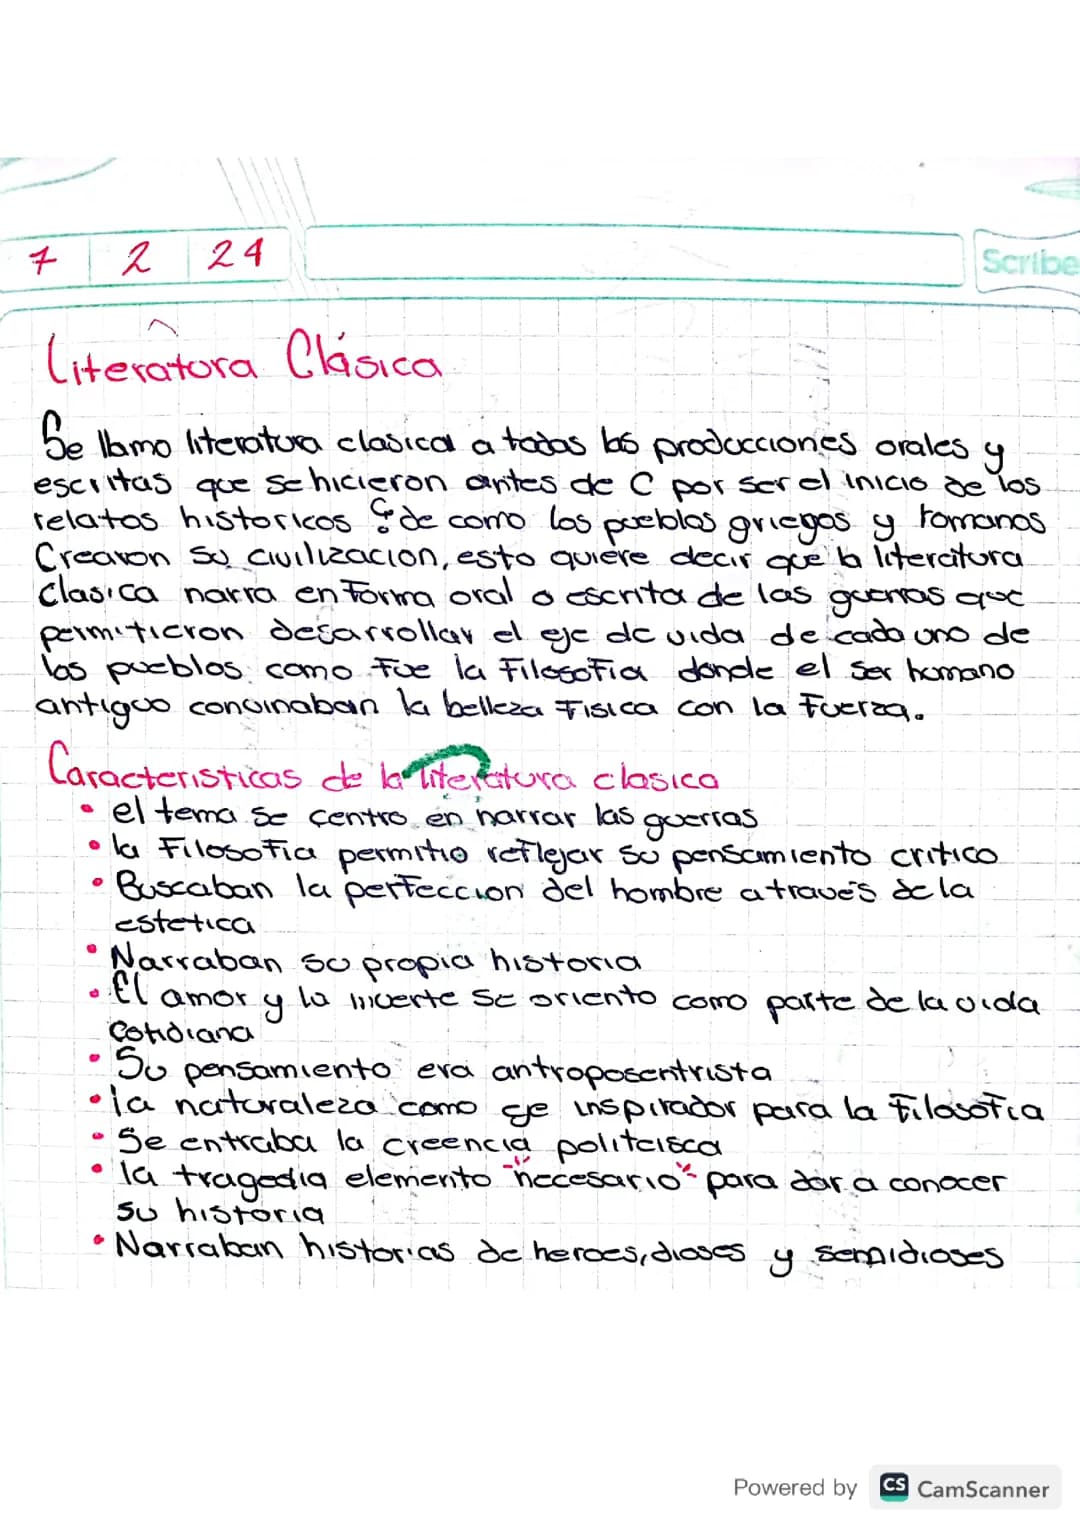 7 2 24
Scribe
Literatura Clásica
Se llamo literatura clasica a todas las producciones orales y
escritas que se hicieron antes de C por ser el inicio de los
relatos historicos de como los pueblos griegos y romanos
Crearon su civilizacion, esto quiere decir que la literatura
clasica narra en forma oral o escrita de las guerras que
permitieron desarrollar el eje de vida de cada uno de
los pueblos como fue la filosofia donde el ser humano
antiguo convinaban la belleza fisica con la fuerza.
Caracteristicas de la literatura clasica
• el tema se centro en narrar las guerras
• la Filosofia permitio reflejar su pensamiento critico
• Buscaban la perfeccion del hombre através de la
estetica
• Narraban su propia historia
• El amor y la muerte se oriento como parte de la vida
cotidiana
• Su pensamiento era antroposentrista
• la naturaleza como eje inspirador para la Filosofia
• Se entraba la creencia politeisca
• la tragedia elemento "necesario" para dar a conocer
su historia
• Narraban historias de heroes, dioses y semidioses
Powered by CS CamScanner